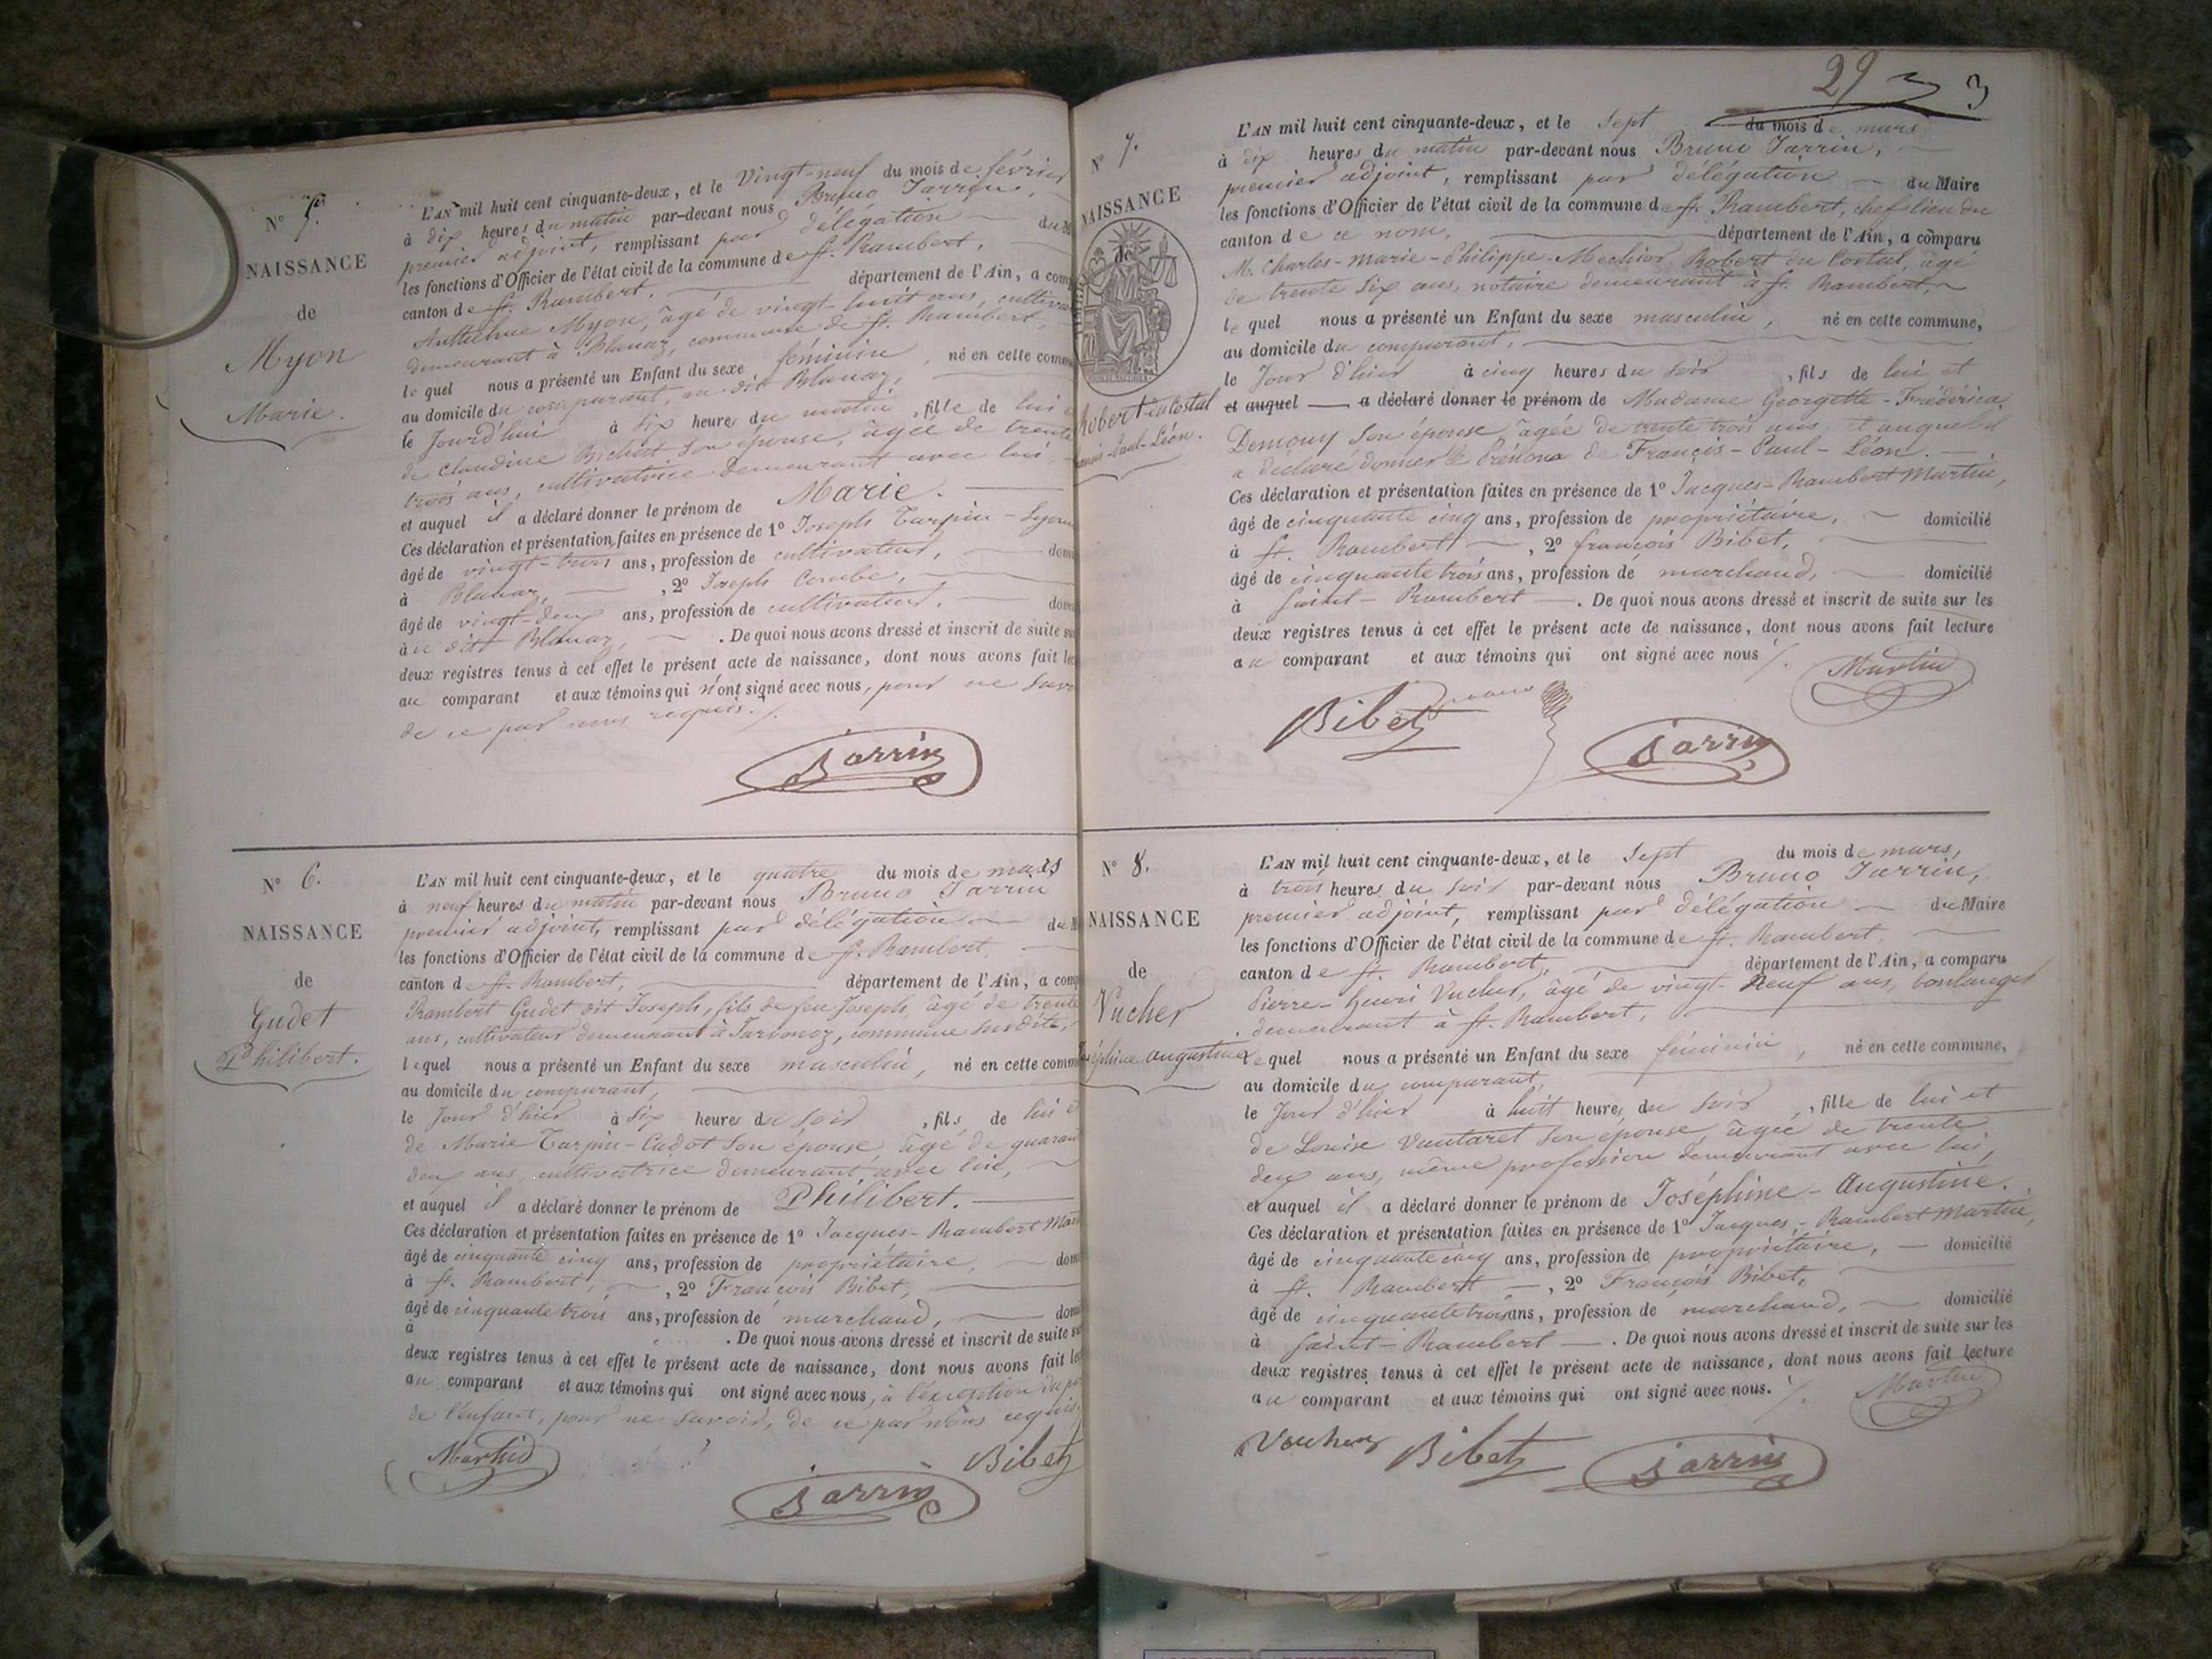 N° 5.
NAISSANCE
de
Myon
Marie.
L'AN mil huit cent cinquante-deux, et le Vingt-neuf du mois de février
à dix heures du matin par-devant nous Bruno Jarrin,
premier adjoint, remplissant par délégation du M
les fonctions d'Officier de l'état civil de la commune de St. Rambert,
canton de St. Rambert, département de l'Ain, a com
Anthelme Myon, âgé de vingt-huit ans, cultiva
demeurant à Blanaz, commune de St. Rambert,
lequel nous a présenté un Enfant du sexe féminin, né en cette comm
au domicile du comparant, au dit Blanaz,
le Jourd'hui à six heures du matin, fille de lui
de Claudine Bichat son épouse, âgée de trente
trois ans, cultivatrice demeurant avec lui,
et auquel il a déclaré donner le prénom de Marie.
Ces déclaration et présentation faites en présence de 1° Joseph Turpin-
âgé de vingt-trois ans, profession de cultivateur, dom
à Blanaz, , 2° Joseph Combe,
âgé de vingt-deux ans, profession de cultivateur, dom
à u dit Blanaz, . De quoi nous avons dressé et inscrit de suite su
deux registres tenus à cet effet le présent acte de naissance, dont nous avons fait lec
au comparant et aux témoins qui n'ont signé avec nous, pour ne savo
de ce par nous requis./.
Jarrin
N° 6.
NAISSANCE
de
Gudet
Philibert.
L'AN mil huit cent cinquante-deux, et le quatre du mois de mars
à neuf heures du matin par-devant nous Bruno Jarrin
premier adjoint, remplissant par délégation du M
les fonctions d'Officier de l'état civil de la commune de St. Rambert,
canton de St. Rambert, département de l'Ain, a comp
Rambert Gudet dit Joseph, fils de feu Joseph, âgé de trente
ans, cultivateur demeurant à Javornoz, commune susdite,
lequel nous a présenté un Enfant du sexe masculin, né en cette comm
au domicile du comparant,
le Jour d'hier à six heures du soir, fils de lui et
de Marie Turpin-Cadot son épouse, âgé de quaran
deux ans, cultivatrice demeurant avec lui,
et auquel il a déclaré donner le prénom de Philibert.
Ces déclaration et présentation faites en présence de 1° Jacques-Rambert Mar
âgé de cinquante cinq ans, profession de propriétaire, dom
à St. Rambert, , 2° François Bibet,
âgé de cinquante trois ans, profession de marchand, dom
à . De quoi nous avons dressé et inscrit de suite su
deux registres tenus à cet effet le présent acte de naissance, dont nous avons fait lec
au comparant et aux témoins qui ont signé avec nous, à l'exception du pè
de l'enfant, pour ne savoir, de ce par nous requis.
Martin
Bibet
Jarrin
29
3
N° 7.
NAISSANCE
de
Robert du Costal
François-Paul-Léon.
L'AN mil huit cent cinquante-deux, et le Sept du mois de mars
à dix heures du matin par-devant nous Bruno Jarrin,
premier adjoint, remplissant par délégation du Maire
les fonctions d'Officier de l'état civil de la commune de St. Rambert, chef lieu du
canton de ce nom, département de l'Ain, a comparu
M. Charles-Marie-Philippe-Mechior Robert du Costal, âgé
de trente six ans, notaire demeurant à St. Rambert,
lequel nous a présenté un Enfant du sexe masculin, né en cette commune,
au domicile du comparant,
le Jour d'hier à cinq heures du soir, fils de lui et
et auquel a déclaré donner le prénom de Madame Georgette-Frédérica
Demouy son épouse âgée de trente trois ans, et auquel il
a déclaré donner le Prénom de François-Paul-Léon.
Ces déclaration et présentation faites en présence de 1° Jacques-Rambert Martin,
âgé de cinquante cinq ans, profession de propriétaire, domicilié
à St. Rambert , 2° françois Bibet,
âgé de cinquante trois ans, profession de marchand, domicilié
à Saint-Rambert . De quoi nous avons dressé et inscrit de suite sur les
deux registres tenus à cet effet le présent acte de naissance, dont nous avons fait lecture
au comparant et aux témoins qui ont signé avec nous./.
Martin
Bibet
Jarrin
N° 8.
NAISSANCE
de
Vucher
Joséphine-augustine
L'AN mil huit cent cinquante-deux, et le Sept du mois de mars,
à trois heures du soir par-devant nous Bruno Jarrin,
premier adjoint, remplissant par délégation du Maire
les fonctions d'Officier de l'état civil de la commune de St. Rambert,
canton de St. Rambert, département de l'Ain, a comparu
Pierre-henri Vucher, âgé de vingt-neuf ans, boulanger
demeurant à St. Rambert,
lequel nous a présenté un Enfant du sexe féminin, né en cette commune,
au domicile du comparant,
le Jour d'hier à huit heures du soir, fille de lui et
de Louise Vautaret son épouse âgée de trente
deux ans, même profession demeurant avec lui,
et auquel il a déclaré donner le prénom de Joséphine-Augustine.
Ces déclaration et présentation faites en présence de 1° Jacques-Rambert Martin,
âgé de cinquante cinq ans, profession de propriétaire, domicilié
à St. Rambert , 2° François Bibet,
âgé de cinquante trois ans, profession de marchand, domicilié
à Saint-Rambert . De quoi nous avons dressé et inscrit de suite sur les
deux registres tenus à cet effet le présent acte de naissance, dont nous avons fait lecture
au comparant et aux témoins qui ont signé avec nous./.
Martin
Vucher
Bibet
Jarrin